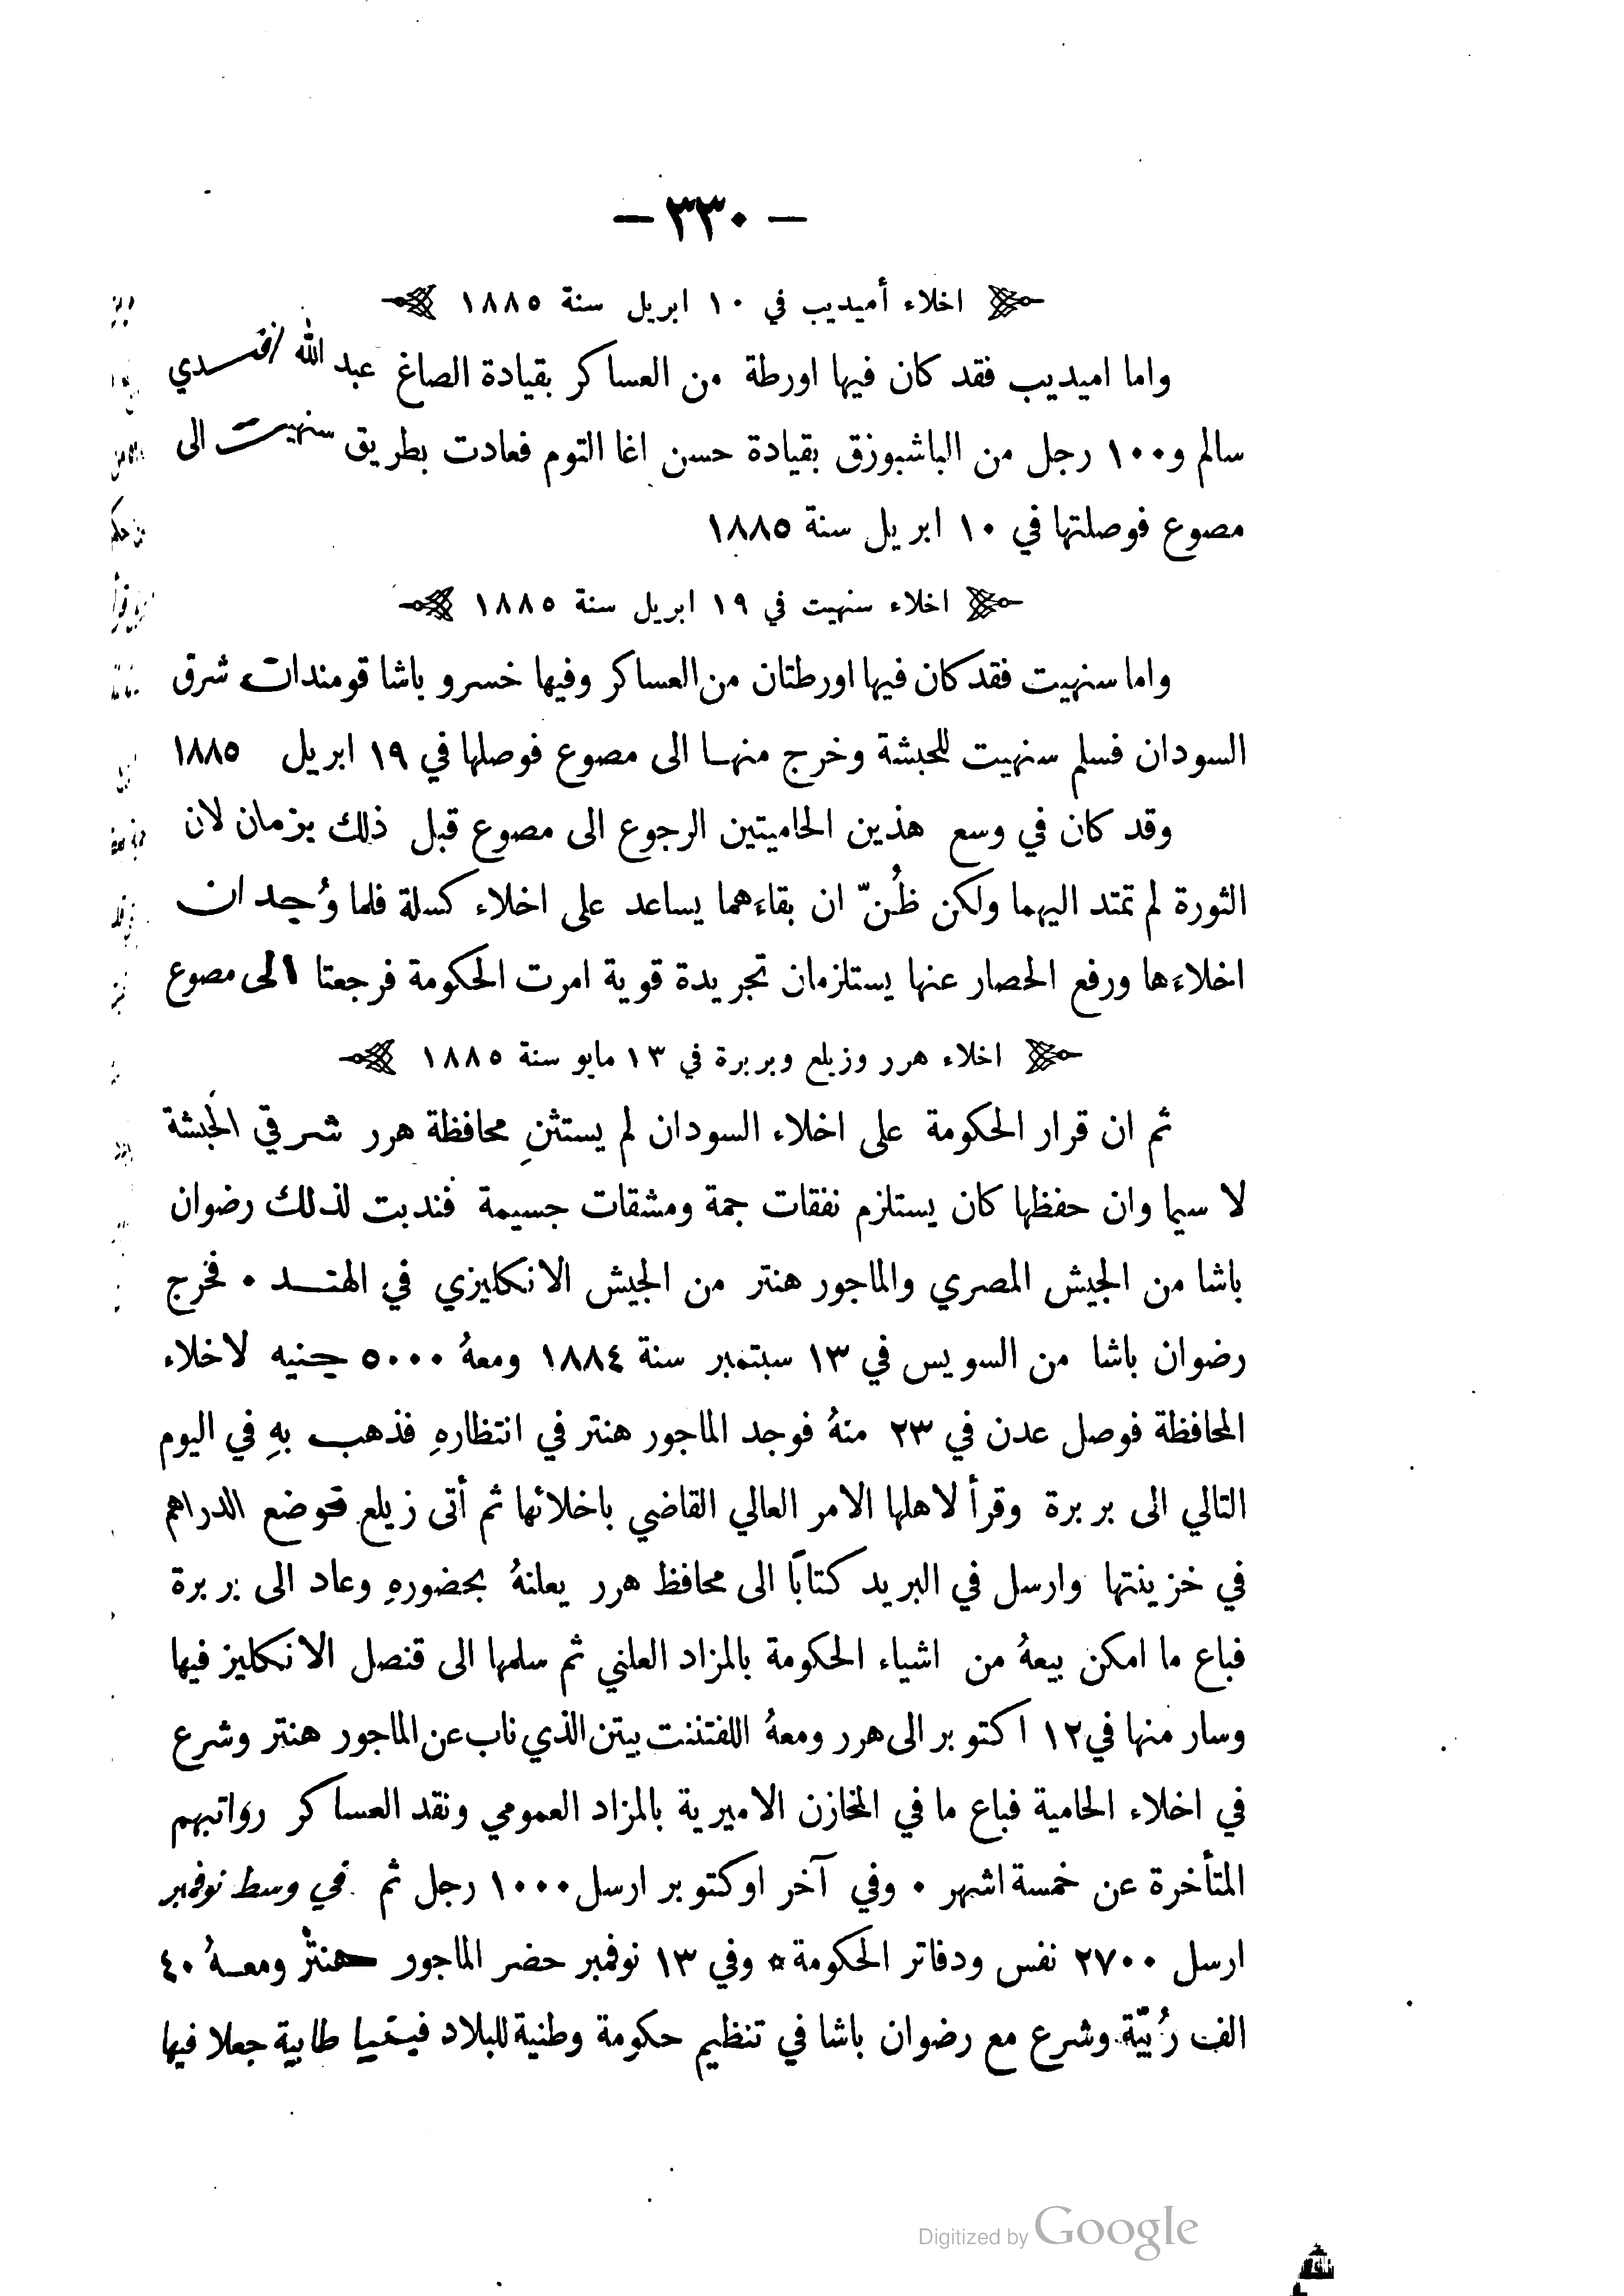 — ٣٣٠ —
اخلاء أميديب في ١٠ ابريل سنة ١٨٨٥
واما اميديب فقد كان فيها اورطة من العساكر بقيادة الصاغ عبد الله افنـدي
سالم و١٠٠ رجل من الباشبوزق بقيادة حسن اغا التوم فعادت بطريق سنهيت الى
مصوع فوصلتها في ١٠ ابريل سنة ١٨٨٥
اخلاء سنهيت في ١٩ ابريل سنة ١٨٨٥
واما سنهيت فقد كان فيها اورطتان من العساكر وفيها خسرو باشا قومندان شرق
السودان فسلم سنهيت للحبشة وخرج منهـا الى مصوع فوصلها في ١٩ ابريل ١٨٨٥
وقد كان في وسع هذين الحاميتين الرجوع الى مصوع قبل ذلك بزمان لان
الثورة لم تمتد اليهما ولكن ظُنّ ان بقاءهما يساعد على اخلاء كسلة فلما وُجد ان
اخلاءها ورفع الحصار عنها يستلزمان تجريدة قوية امرت الحكومة فرجعتا الى مصوع
اخلاء هرر وزيلع وبربرة في ١٣ مايو سنة ١٨٨٥
ثم ان قرار الحكومة على اخلاء السودان لم يستثنِ محافظة هرر شرقي الحبشة
لا سيما وان حفظها كان يستلزم نفقات جمة ومشقات جسيمة فندبت لذلك رضوان
باشا من الجيش المصري والماجور هنتر من الجيش الانكليزي في الهنـد ٠ فخرج
رضوان باشا من السويس في ١٣ سبتمبر سنة ١٨٨٤ ومعهُ ٥٠٠٠ جنيه لاخلاء
المحافظة فوصل عدن في ٢٣ منهُ فوجد الماجور هنتر في انتظارهِ فذهب بهِ في اليوم
التالي الى بربرة وقرأ لاهلها الامر العالي القاضي باخلائها ثم أتى زيلع فوضع الدراهم
في خزينتها وارسل في البريد كتابًا الى محافظ هرر يعلنهُ بحضورهِ وعاد الى بربرة
فباع ما امكن بيعهُ من اشياء الحكومة بالمزاد العلني ثم سلمها الى قنصل الانكليز فيها
وسار منها في ١٢ اكتوبر الى هرر ومعهُ اللفتننت بيتن الذي ناب عن الماجور هنتر وشرع
في اخلاء الحامية فباع ما في المخازن الاميرية بالمزاد العمومي ونقد العساكر رواتبهم
المتأخرة عن خمسة اشهر ٠ وفي آخر اوكتوبر ارسل ١٠٠٠ رجل ثم في وسط نوفمبر
ارسل ٢٧٠٠ نفس ودفاتر الحكومة * وفي ١٣ نوفمبر حضر الماجور هنتر ومعـهُ ٤٠
الف رُبّيّة وشرع مع رضوان باشا في تنظيم حكومة وطنية للبلاد فبنيا طابية جعلا فيها
Digitized by Google